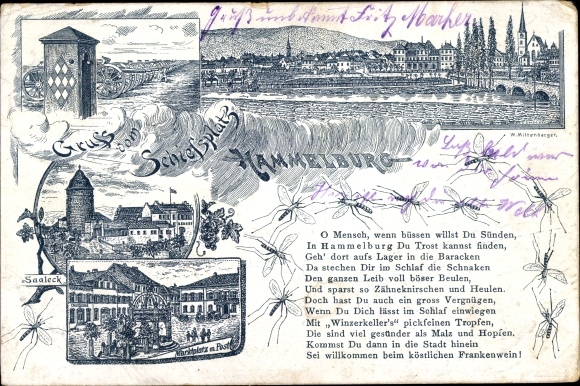 Gruß unbekannt Fritz Marher
W. Miltenberger.
Gruss vom Schießplatz
HAMMELBURG
Saaleck
Marktplatz m. Post
O Mensch, wenn büssen willst Du Sünden,
In Hammelburg Du Trost kannst finden,
Geh' dort aufs Lager in die Baracken
Da stechen Dir im Schlaf die Schnaken
Den ganzen Leib voll böser Beulen,
Und sparst so Zähneknirschen und Heulen.
Doch hast Du auch ein gross Vergnügen,
Wenn Du Dich lässt im Schlaf einwiegen
Mit „Winzerkeller's" pickfeinen Tropfen,
Die sind viel gesünder als Malz und Hopfen.
Kommst Du dann in die Stadt hinein
Sei willkommen beim köstlichen Frankenwein!